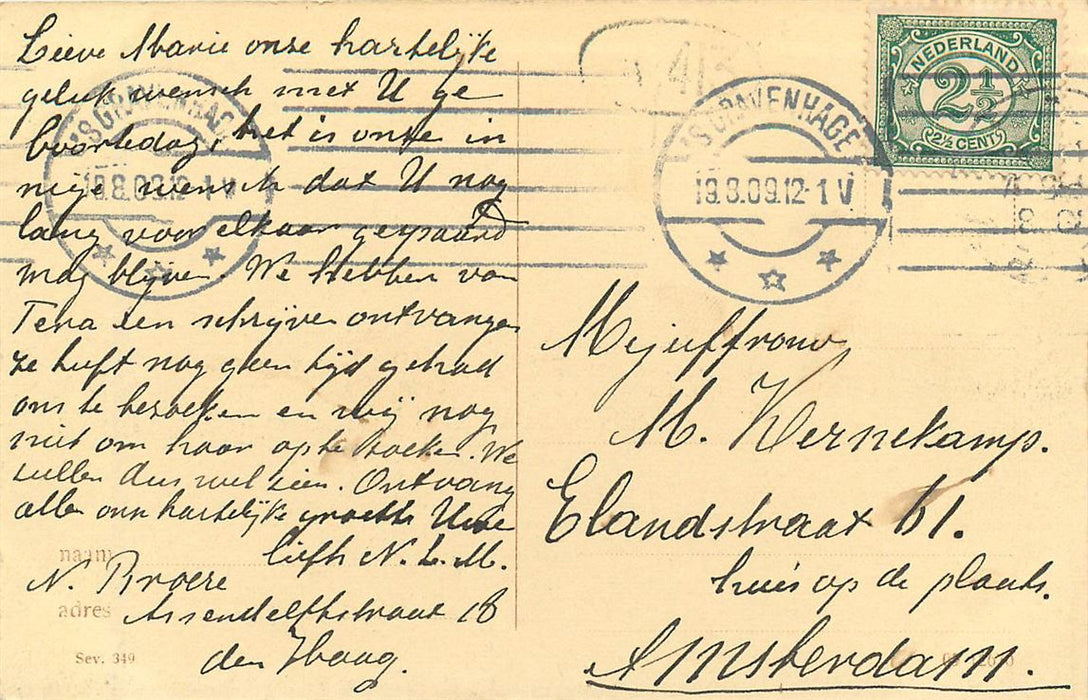 Lieve Marie onze hartelijke
geluk wensch met U ge
boortedag, het is onze in
nige wensch dat U nog
lang voor elkaar gespaard
mag blijven. We hebben van
Tena een schrijven ontvangen
ze heeft nog geen tijd gehad
ons te bezoeken en wij nog
niet om haar op te zoeken. We
zullen dus wel zien. Ontvang
allen onn hartelijke groeten Uwe
liefh N. L. M.
naam
N. Broere
adres Assendelftstraat 18
den Haag.
Sev. 349
'S GRAVENHAGE
19.8.09.12-1 V
'S GRAVENHAGE
19.8.09.12-1 V
NEDERLAND
2½
2½ CENT
Mejuffrouw
M. Wernekamp.
Elandstraat 61.
huis op de plaats.
Amsterdam.